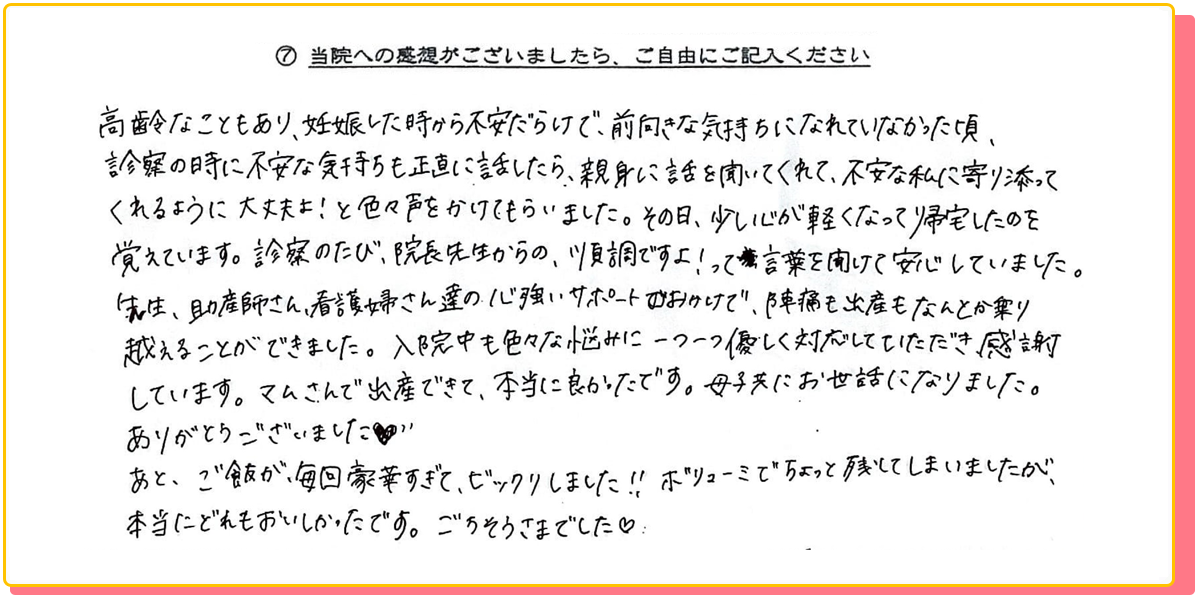 ⑦ 当院への感想がございましたら、ご自由にご記入ください
高齢なこともあり、妊娠した時から不安だらけで、前向きな気持ちになれていなかった頃、
診察の時に不安な気持ちも正直に話したら、親身に話を聞いてくれて、不安な私に寄り添って
くれるように大丈夫よ!と色々声をかけてもらいました。その日、少し心が軽くなって帰宅したのを
覚えています。診察のたび、院長先生からの、順調ですよ!って言葉を聞けて安心していました。
先生、助産師さん、看護婦さん達の心強いサポートのおかげで、陣痛も出産もなんとか乗り
越えることができました。入院中も色々な悩みに一つ一つ優しく対応していただき、感謝
しています。マムさんで出産できて、本当に良かったです。母子共にお世話になりました。
ありがとうございました♥
あと、ご飯が、毎回豪華すぎて、ビックリしました!! ボリューミでちょっと残してしまいましたが、
本当にどれもおいしかったです。ごちそうさまでした♡